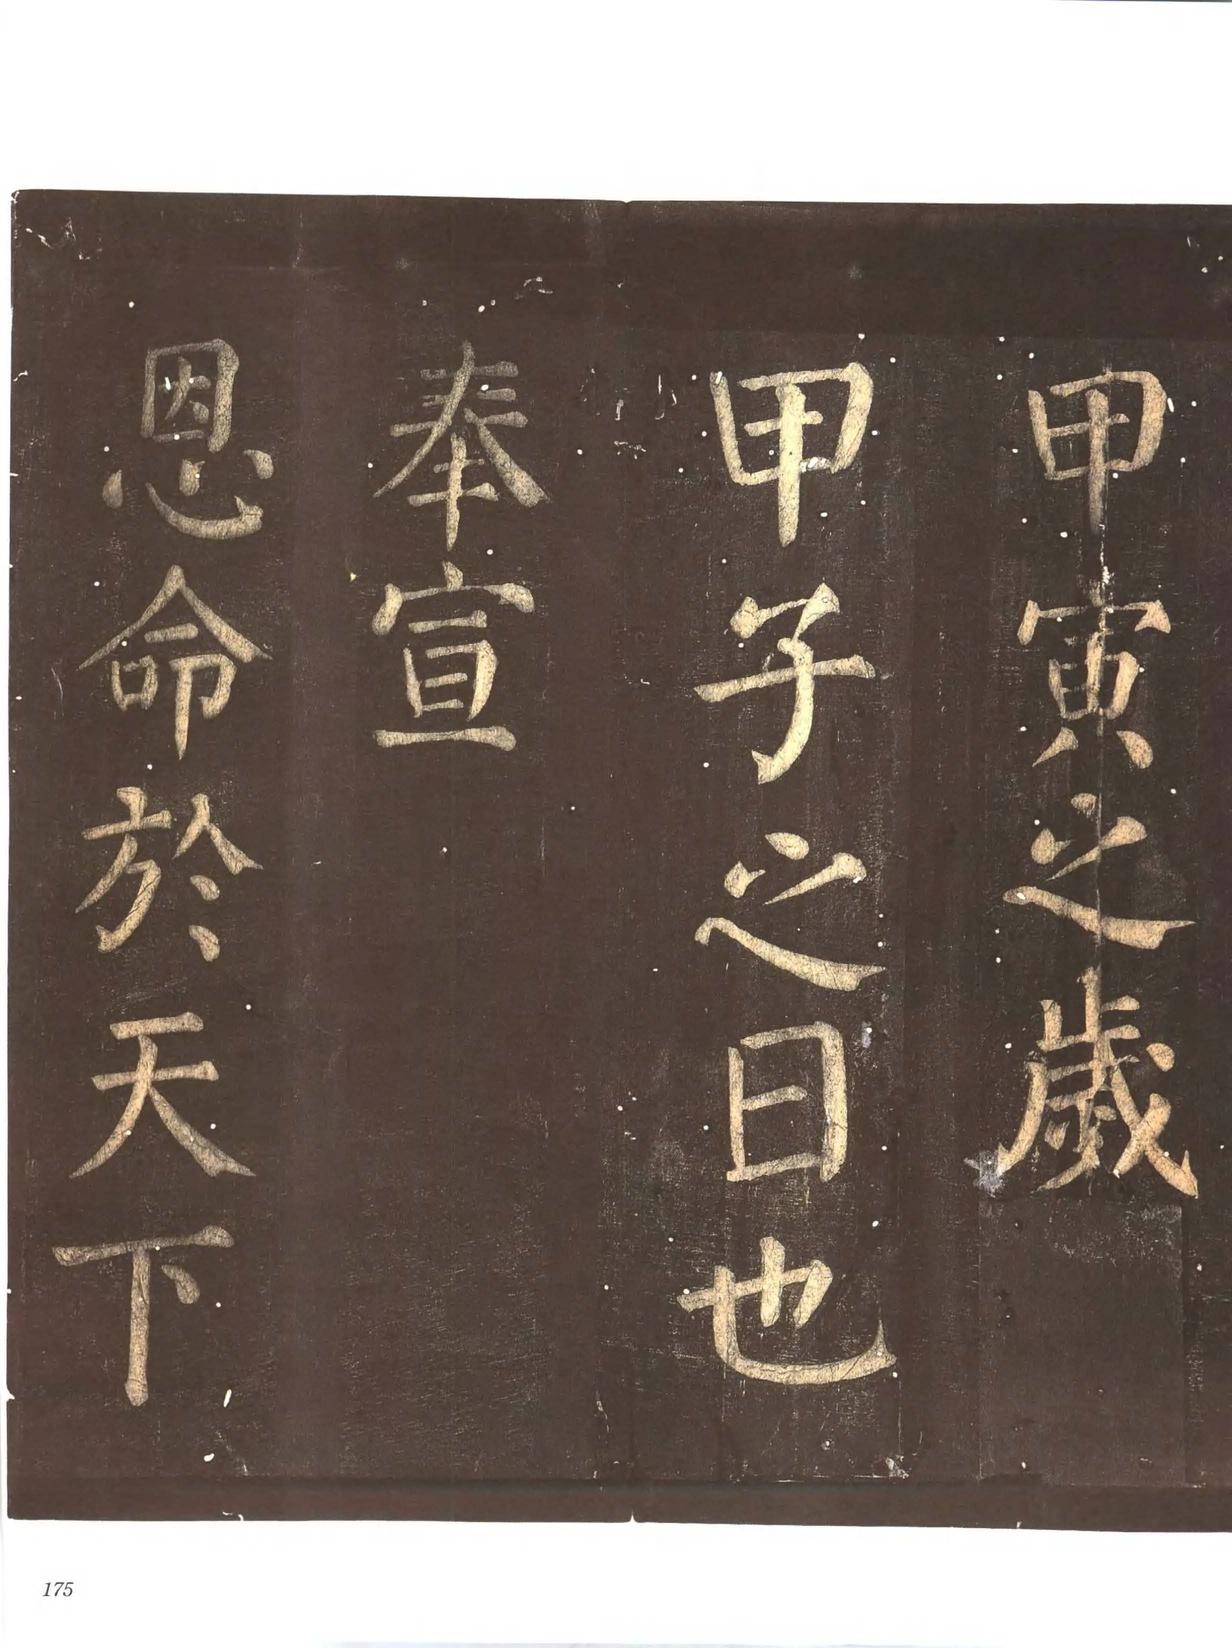 甲寅之歲
甲子之日也
奉宣
恩命於天下
175